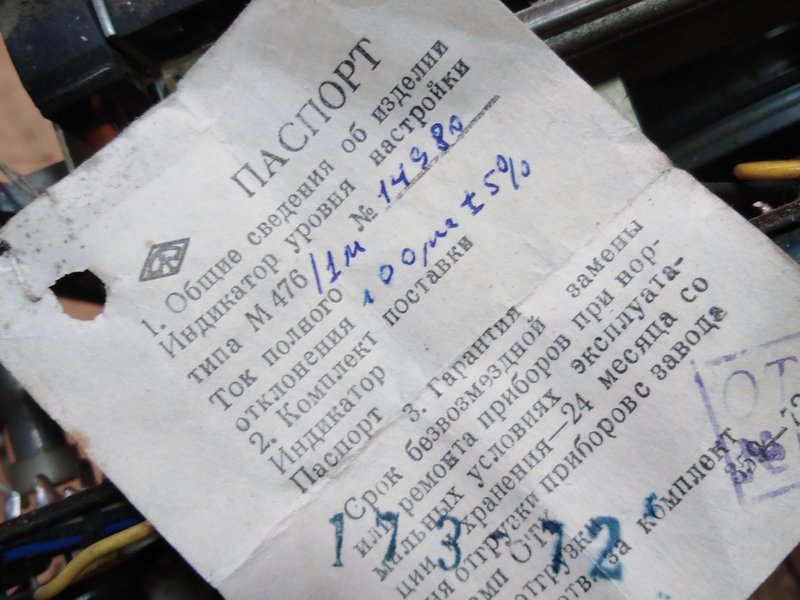 ПАСПОРТ
1. Общие сведения об изделии
Индикатор уровня настройки
типа М 476/1м № 14980
Ток полного
отклонения 100 μа ± 5%
2. Комплект поставки
Индикатор
Паспорт
3. Гарантия
Срок безвозмездной замены
или ремонта приборов при нор-
мальных условиях эксплуата-
ции хранения—24 месяца со
отгрузки приборов с завода
отгрузки
за комплект
173-72
ОТ